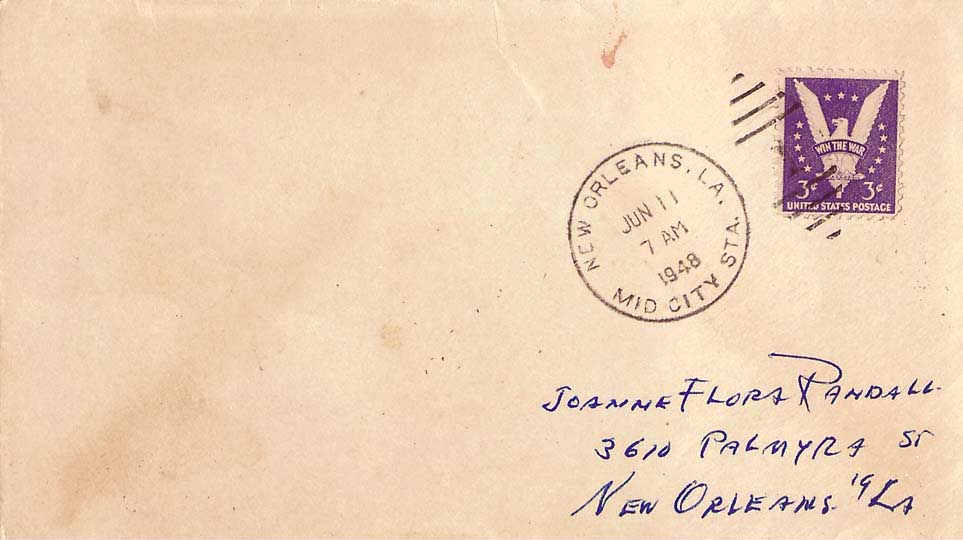 NEW ORLEANS, LA.
JUN 11
7 AM
1948
MID CITY STA.
WIN THE WAR
3¢ 3¢
UNITED STATES POSTAGE
JOANNE FLORA RANDALL
3610 PALMYRA ST
NEW ORLEANS. '19 LA